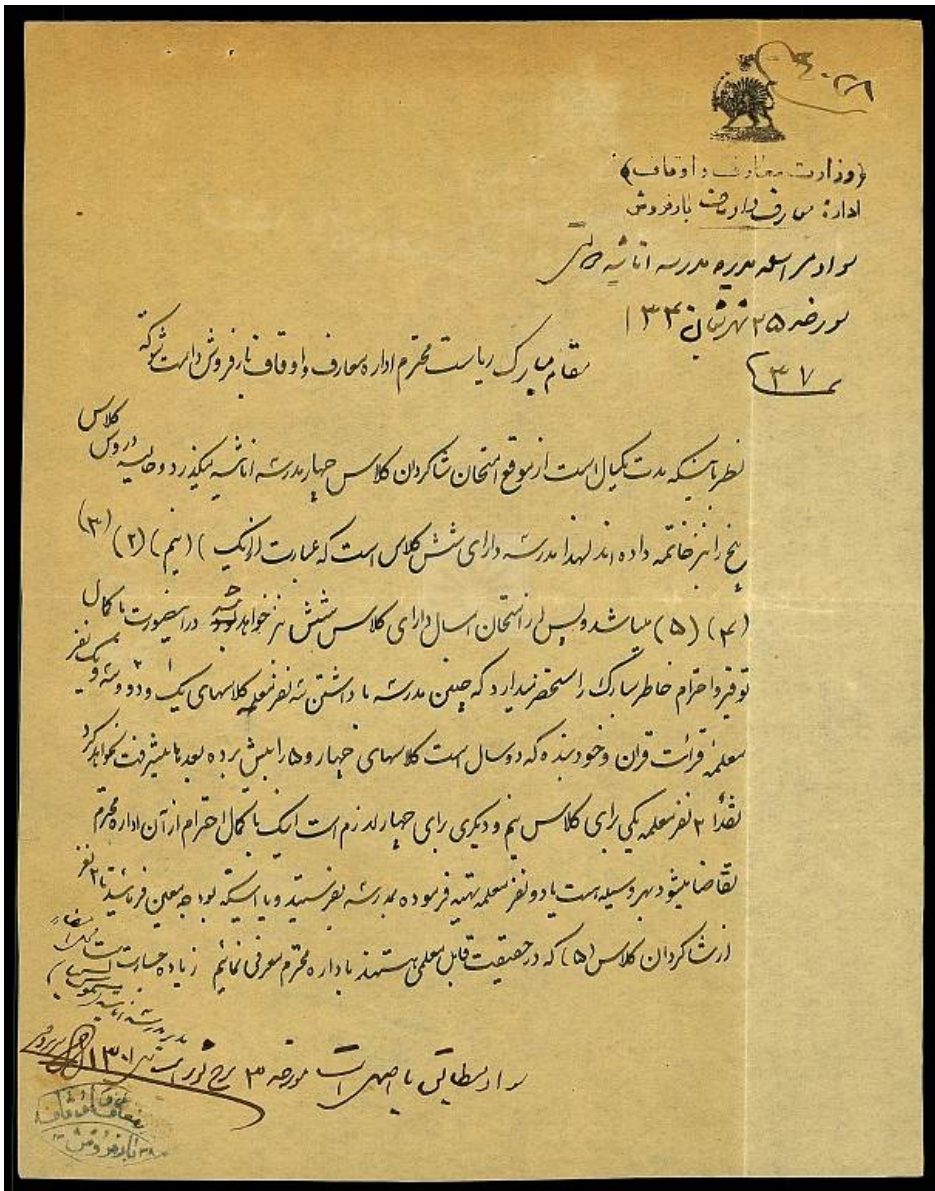 (وزارت معارف و اوقاف)
ادارهٔ معارف و اوقاف بارفروش
سواد مراسله مدیره مدرسه اناثیه دولتی
مورخه ۲۵ شهر شعبان ۱۳۴۰
نمره ۳۷
مقام مبارک ریاست محترم اداره معارف و اوقاف بارفروش دامت شوکته
نظر باینکه مدت یکسال است از موقع امتحان شاگردان کلاس چهار مدرسه اناثیه میگذرد و حالیه دروس کلاس
پنج را نیز خاتمه داده اند لهذا مدرسه دارای شش کلاس است که عبارت از (یک) (نیم) (۲) (۳)
(۴) (۵) میباشد و پس از امتحان امسال دارای کلاس شش نیز خواهد شد در اینصورت با کمال
توقیر و احترام خاطر مبارک را مستحضر میدارد که چنین مدرسه با داشتن سه نفر معلمه کلاسهای یک و دو و سه و یک نفر
معلمه قرائت قرآن و خود بنده که دو سال است کلاسهای چهار و ۵ را پیش برده بعدها پیشرفت نخواهد کرد
نقداً ۲ نفر معلمه یکی برای کلاس نیم و دیگری برای چهار لازم است اینک با کمال احترام از آن اداره محترم
تقاضا میشود بهر وسیله هست یا دو نفر معلمه تهیه فرموده بمدرسه بفرستید و یا اینکه بودجه معین فرمائید تا ۲ نفر
از شاگردان کلاس (۵) که در حقیقت قابل معلمی هستند باداره محترم معرفی نمائیم زیاده جسارت است محل امضاء
مدیره مدرسه اناثیه
سواد مطابق با اصل است مورخه ۳ برج ثور ۱۳۰۱
معارف و اوقاف
بارفروش